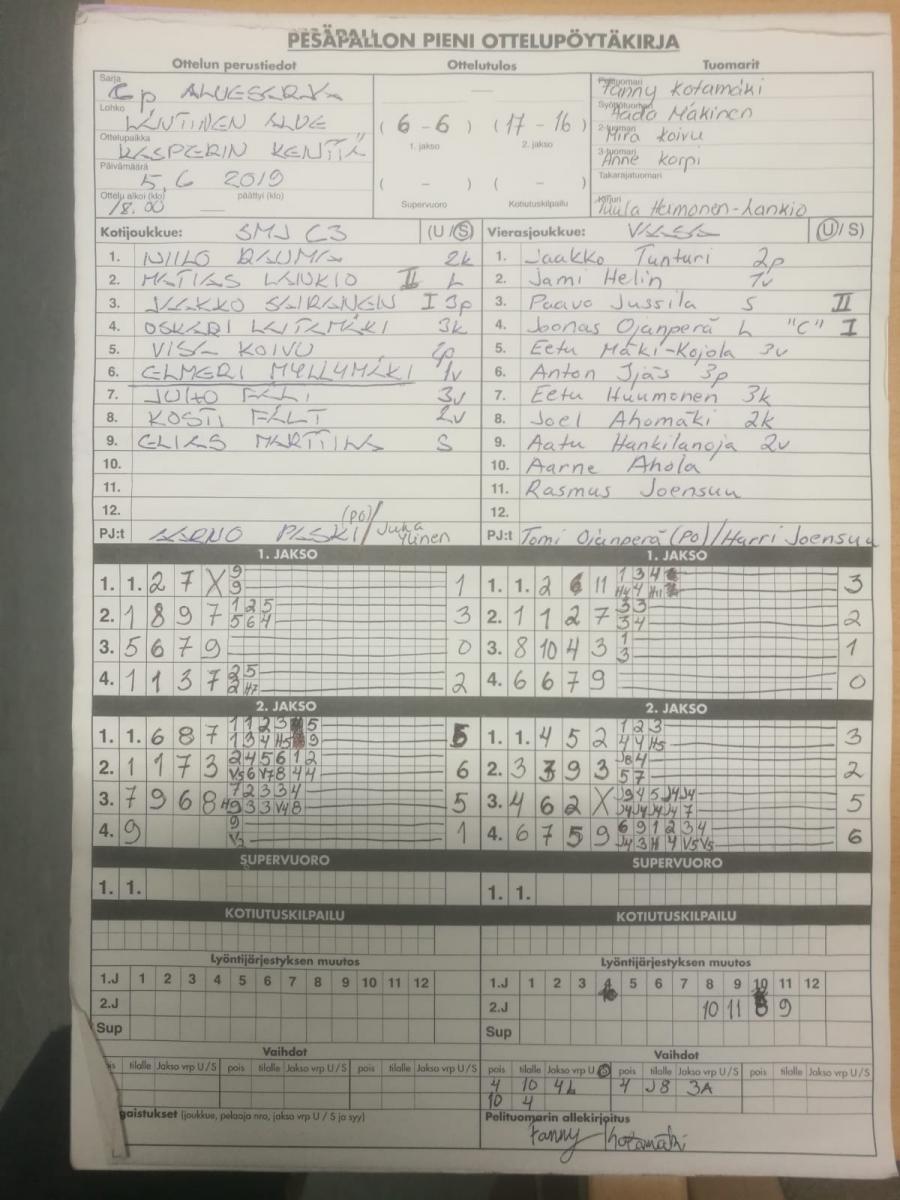 PESÄPALLON PIENI OTTELUPÖYTÄKIRJA
Ottelun perustiedot
Ottelutulos
Tuomarit
Sarja
Cp ALUESARJA
Lohko
LÄNTINEN ALUE
Ottelupaikka
KASPERIN KENTTÄ
Päivämäärä
5.6 2019
Ottelu alkoi (klo) päättyi (klo)
18.00 —
( 6 - 6 ) (17 - 16 )
1. jakso 2. jakso
( - ) ( - )
Supervuoro Kotiutuskilpailu
Pelituomari
Fanny Kotamäki
Syöttötuomari
Aada Mäkinen
2-tuomari
Mira Koivu
3-tuomari
Anne Korpi
Takarajatuomari
Kirjuri
Tuula Heimonen-Lankio
Kotijoukkue: SMJ C3 (U/S)
1. NIILO RAUMA 2k
2. MATIAS LANKIO II L
3. JAAKKO SAIRANEN I 3p
4. OSKARI LAITAMÄKI 3k
5. VISA KOIVU 2p
6. ELMERI MYLLYMÄKI 1v
7. JUHO FÄLT 3v
8. KOSTI FÄLT 2v
9. ELIAS MARTTILA S
10.
11.
12.
PJ:t AARNO PASKI (PO) / Juha Ylinen
Vierasjoukkue: VAASA (U/S)
1. Jaakko Tunturi 2p
2. Jami Helin 1v
3. Paavo Jussila S II
4. Joonas Ojanperä L "C" I
5. Eetu Mäki-Kojola 3v
6. Anton Ijäs 3p
7. Eetu Huumonen 3k
8. Joel Ahomäki 2k
9. Aatu Hankilanoja 2v
10. Aarne Ahola
11. Rasmus Joensuu
12.
PJ:t Tomi Ojanperä (PO)/Harri Joensuu
1. JAKSO
1. 1. 2 7 X 9 1
9
2. 1 8 9 7 1 2 5 3
5 6 4
3. 5 6 7 9 0
4. 1 1 3 7 2 5 2
2 H7
2. JAKSO
1. 1. 6 8 7 1 1 2 3 5 5
1 3 4 H5 9
2. 1 1 7 3 2 4 5 6 1 2 6
V5 6 V7 8 4 4
3. 7 9 6 8 7 2 3 3 4 5
H9 3 3 V4 8
4. 9 9 1
SUPERVUORO
1. 1.
KOTIUTUSKILPAILU
Lyöntijärjestyksen muutos
1.J 1 2 3 4 5 6 7 8 9 10 11 12
2.J
Sup
Vaihdot
pois tilalle Jakso vrp U/S pois tilalle Jakso vrp U/S pois tilalle Jakso vrp U/S
gaistukset (joukkue, pelaaja nro, jakso vrp U / S ja syy)
1. JAKSO
1. 1. 2 6 11 1 3 4 3
H4 4 H11
2. 1 1 2 7 3 3 2
3 4
3. 8 10 4 3 1 1
3
4. 6 6 7 9 0
2. JAKSO
1. 1. 4 5 2 1 2 3 3
4 4 H5
2. 3 3 9 3 J8 4 2
5 7
3. 4 6 2 X J9 4 5 J4 J4 5
J4 J4 J4 J4 7
4. 6 7 5 9 6 9 1 2 3 4 6
J4 3 H 4 V5 V5
SUPERVUORO
1. 1.
KOTIUTUSKILPAILU
Lyöntijärjestyksen muutos
1.J 1 2 3 4 5 6 7 8 9 10 11 12
2.J 10 11 8 9
Sup
Vaihdot
pois tilalle Jakso vrp U/S pois tilalle Jakso vrp U/S pois tilalle Jakso vrp U/S
4 10 4L 4 J8 3A
10 4
Pelituomarin allekirjoitus
Fanny Kotamäki